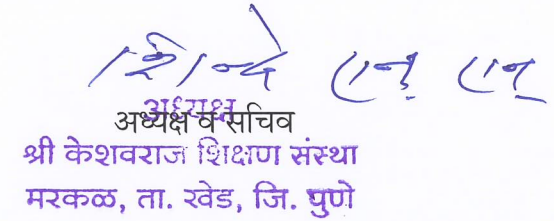 शिन्दे एन् एन्
अध्यक्ष
अध्यक्ष व सचिव
श्री केशवराज शिक्षण संस्था
मरकळ, ता. खेड, जि. पुणे